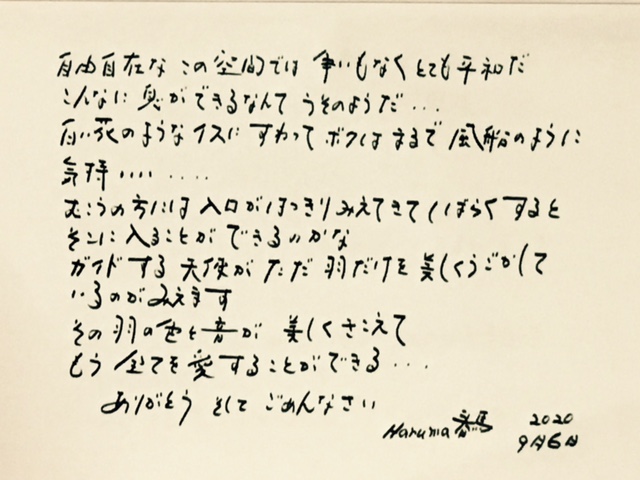 自由自在な この空間では 争いもなく とても平和だ
こんなに 息ができるなんて うそのようだ...
白い花のようなイスに すわって ボクは まるで 風船のように
気持........
むこうの方には 入口がはっきりみえてきて しばらくすると
そこに 入ることが できるのかな
ガイドする 天使が ただ 羽だけを 美しくうごかして
いるのがみえます
その羽の色と音が 美しくさこえて
もう 全てを 愛することができる...
ありがとう そして ごめんなさい
Haruma 春馬 2020
9月6日